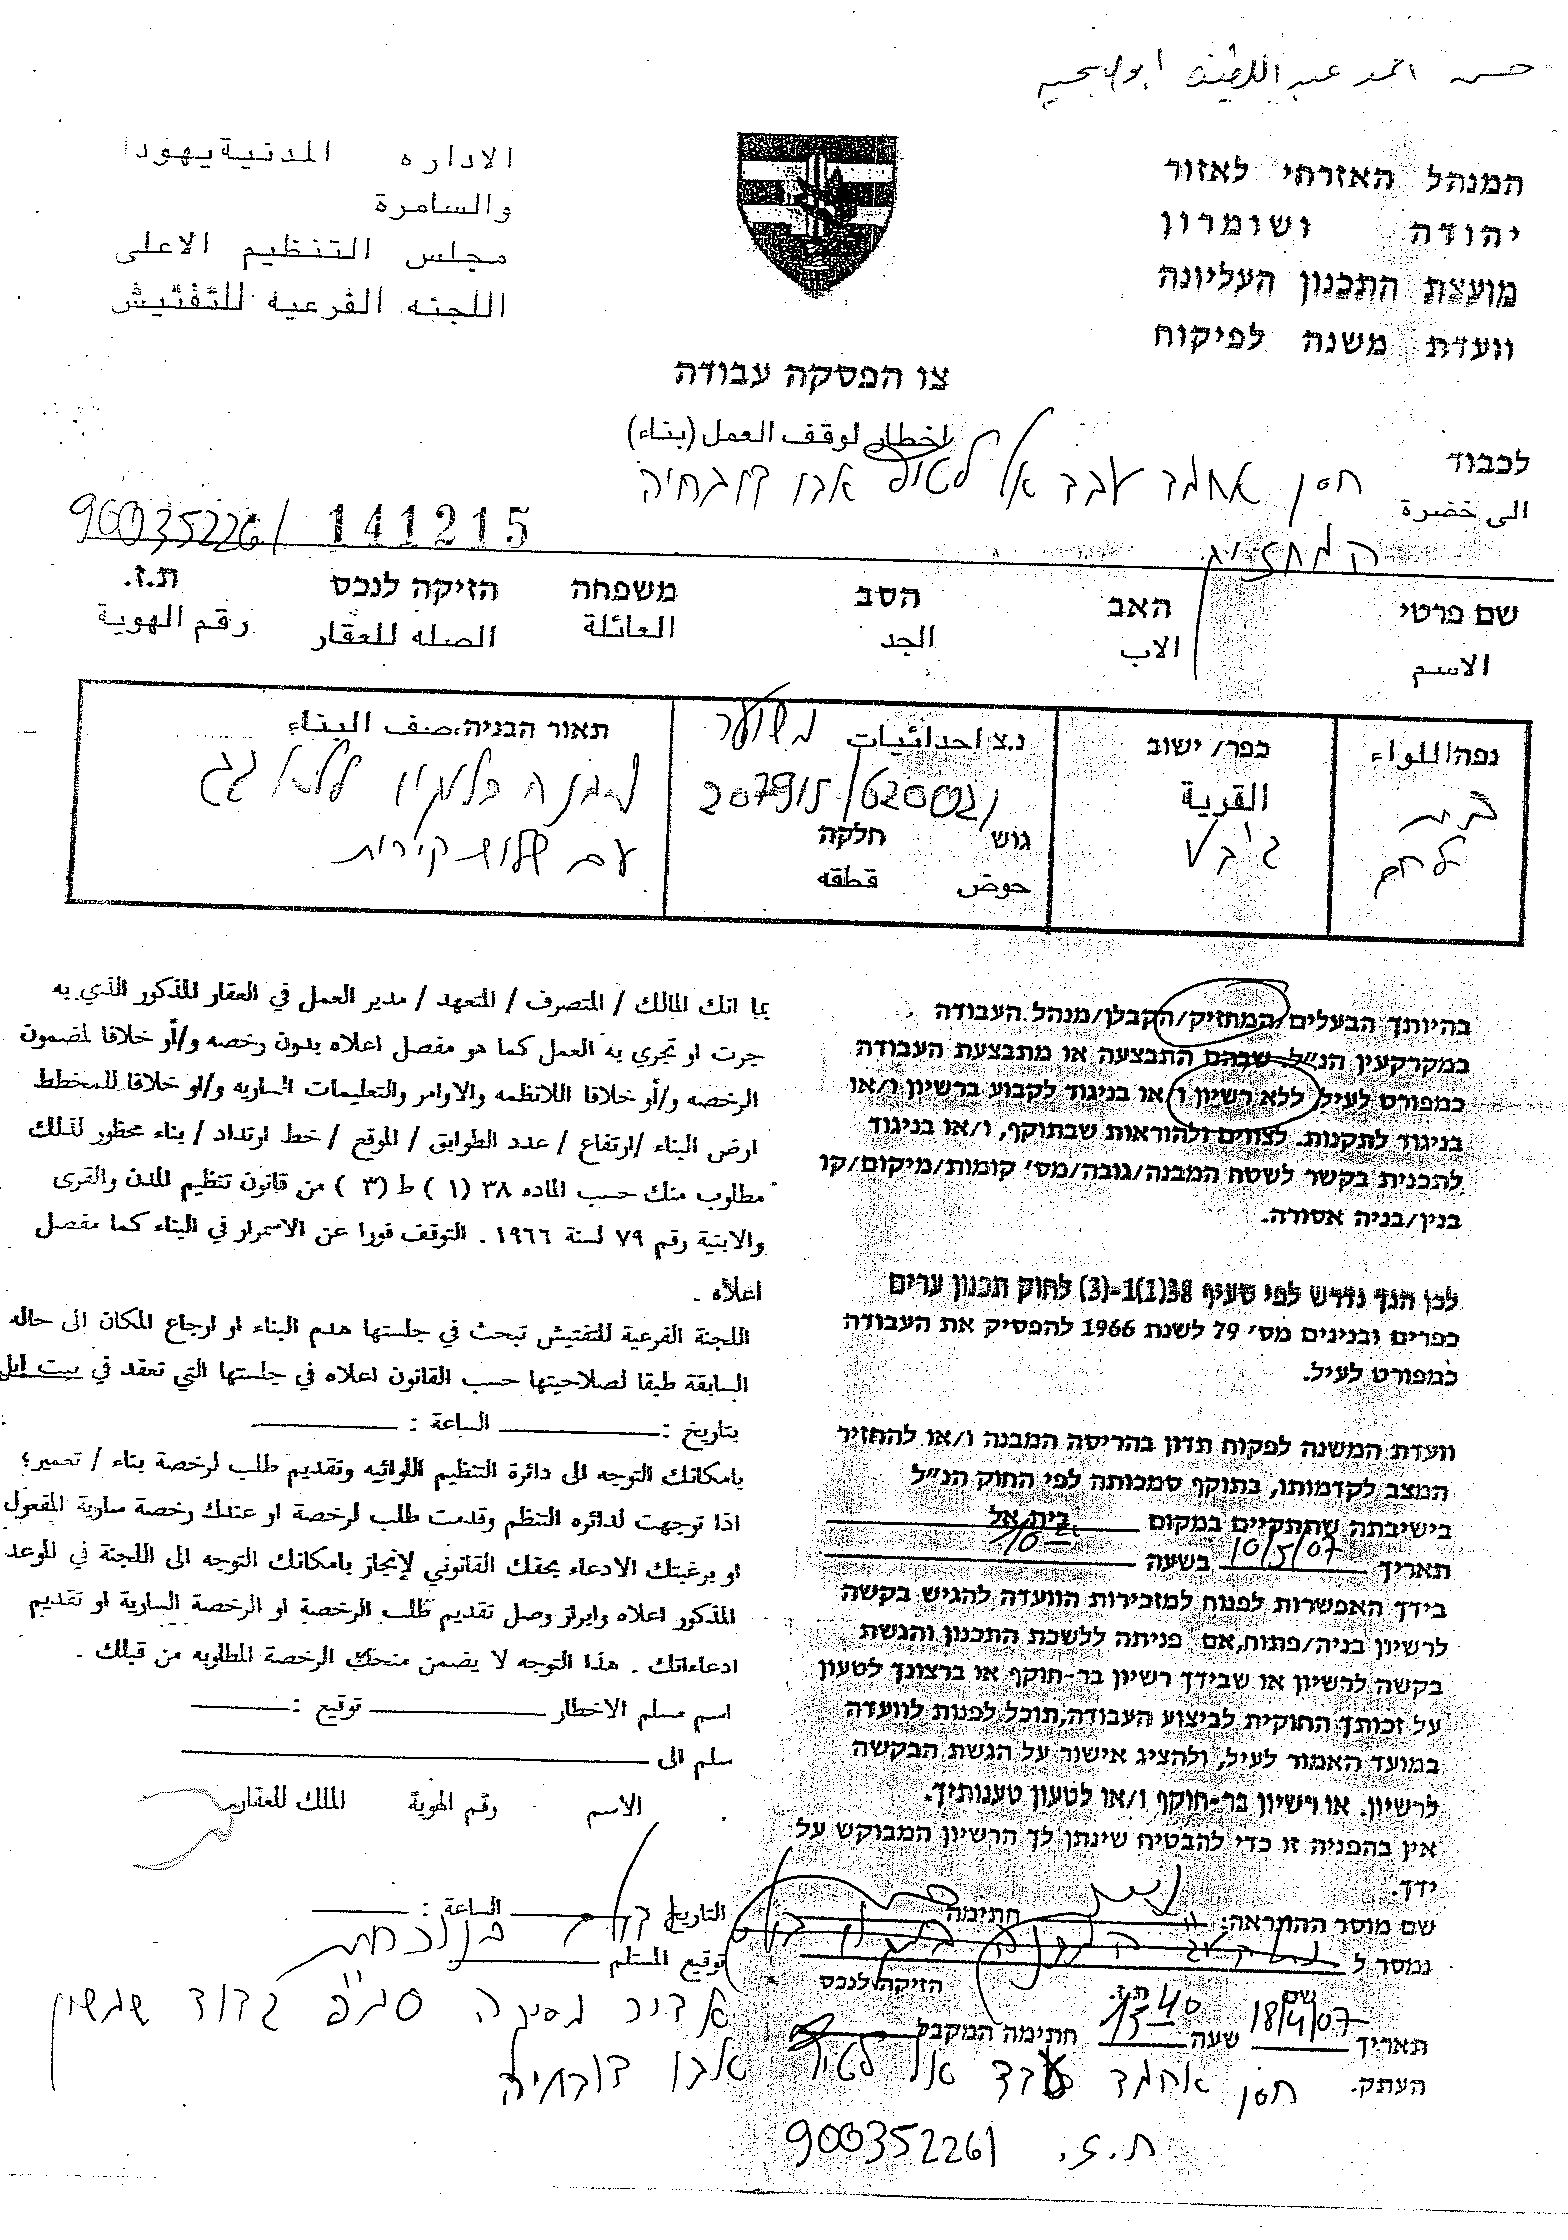 حسن احمد عبد اللطيف ابو
המנהל האזרחי לאזור
יהודה ושומרון
מועצת התכנון העליונה
וועדת משנה לפיקוח
الاداره المدنية يهودا
والسامرة
مجلس التنظيم الاعلى
اللجنه الفرعية للتفتيش
צו הפסקה עבודה
اخطار لوقف العمل (بناء)
לכבוד
חסן אחמד עבד אל לטיף אבו
الى خضرة
המחזיק
141215
900352261
שם פרטי האב הסב משפחה הזיקה לנכס ת.ז.
الاسم الاب الجد العائلة الصله للعقار رقم الهوية
נפה اللواء
בית
לחם
כפר/ ישוב
القرية
ג'בע
נ.צ احداثيات משוער
207915/620021
גוש חלקה
حوض قطقه
תאור הבניה، صنف البناء
מבנה ללא גג
עם שלוש קירות
בהיותך הבעלים/המחזיק/הקבלן/מנהל העבודה
במקרקעין הנ"ל שבהם התבצעה או מתבצעת העבודה
כמפורט לעיל ללא רשיון ו/או בניגוד לקבוע ברשיון ו/או
בניגוד לתקנות. לצווים ולהוראות שבתוקף, ו/או בניגוד
לתכנית בקשר לשטח המבנה/גובה/מס' קומות/מיקום/קו
בנין/בניה אסורה.
לכן הנך נדרש לפי סעיף 38(1)1-(3) לחוק תכנון ערים
כפרים ובנינים מס' 79 לשנת 1966 להפסיק את העבודה
כמפורט לעיל.
וועדת המשנה לפקוח תדון בהריסה המבנה ו/או להחזיר
המצב לקדמותו, בתוקף סמכותה לפי החוק הנ"ל
בישיבתה שתתקיים במקום בית אל
תאריך 10/5/07 בשעה
בידך האפשרות לפנות למזכירות הוועדה להגיש בקשה
לרשיון בניה/פתוח,אם פניתה ללשכת התכנון והגשת
בקשה לרשיון או שבידך רשיון בר-תוקף או ברצונך לטעון
על זכותך החוקית לביצוע העבודה,תוכל לפנות לוועדה
במועד האמור לעיל, ולהציג אישור על הגשת הבקשה
לרשיון. או רשיון בר-תוקף ו/או לטעון טענותיך.
אין בהפניה זו כדי להבטיח שינתן לך הרשיון המבוקש על
ידך.
שם מוסר ההתראה: חתימה
נמסר ל
שם ת.ז. הזיקה לנכס
תאריך 18/4/07 שעה 13 40 חתימה המקבל
העתק.
بما انك المالك / المتصرف / المتعهد / مدير العمل في العقار المذكور الذي به
جرت او تجري به العمل كما هو مفصل اعلاه بدون رخصه و/أو خلافا لمضمون
الرخصه و/أو خلافا اللانظمه والاوامر والتعليمات الساريه و/او خلافا للمخطط
ارض البناء /ارتفاع / عدد الطوابق / الموقع / خط ارتداد / بناء محظور لذلك
مطلوب منك حسب الماده ٣٨ (١) ط (٣) من قانون تنظيم المدن والقرى
والابنية رقم ٧٩ لسنة ١٩٦٦ . التوقف فورا عن الاستمرار في البناء كما مفصل
اعلاه .
اللجنة الفرعية للتفتيش تبحث في جلستها هدم البناء او ارجاع المكان الى حاله
السابقة طبقا لصلاحيتها حسب القانون اعلاه في جلستها التي تعقد في بيت ايل
بتاريخ : الساعة :
بامكانك التوجه الى دائرة التنظيم اللوائيه وتقديم طلب لرخصة بناء / تعمير؛
اذا توجهت لدائره التنظم وقدمت طلب لرخصة او عندك رخصة سارية المفعول
او برغبتك الادعاء بحقك القانوني لإنجاز بامكانك التوجه الى اللجنة في الموعد
المذكور اعلاه وابراز وصل تقديم طلب الرخصة او الرخصة السارية او تقديم
ادعاءاتك . هذا التوجه لا يضمن منحك الرخصة المطلوبه من قبلك .
اسم مسلم الاخطار توقيع :
سلم الى
الاسم رقم الهوية المالك للعقار
التاريخ الساعة :
توقيع المستلم
חסן אחמד עבד אל לטיף אבו
ת.ז. 900352261